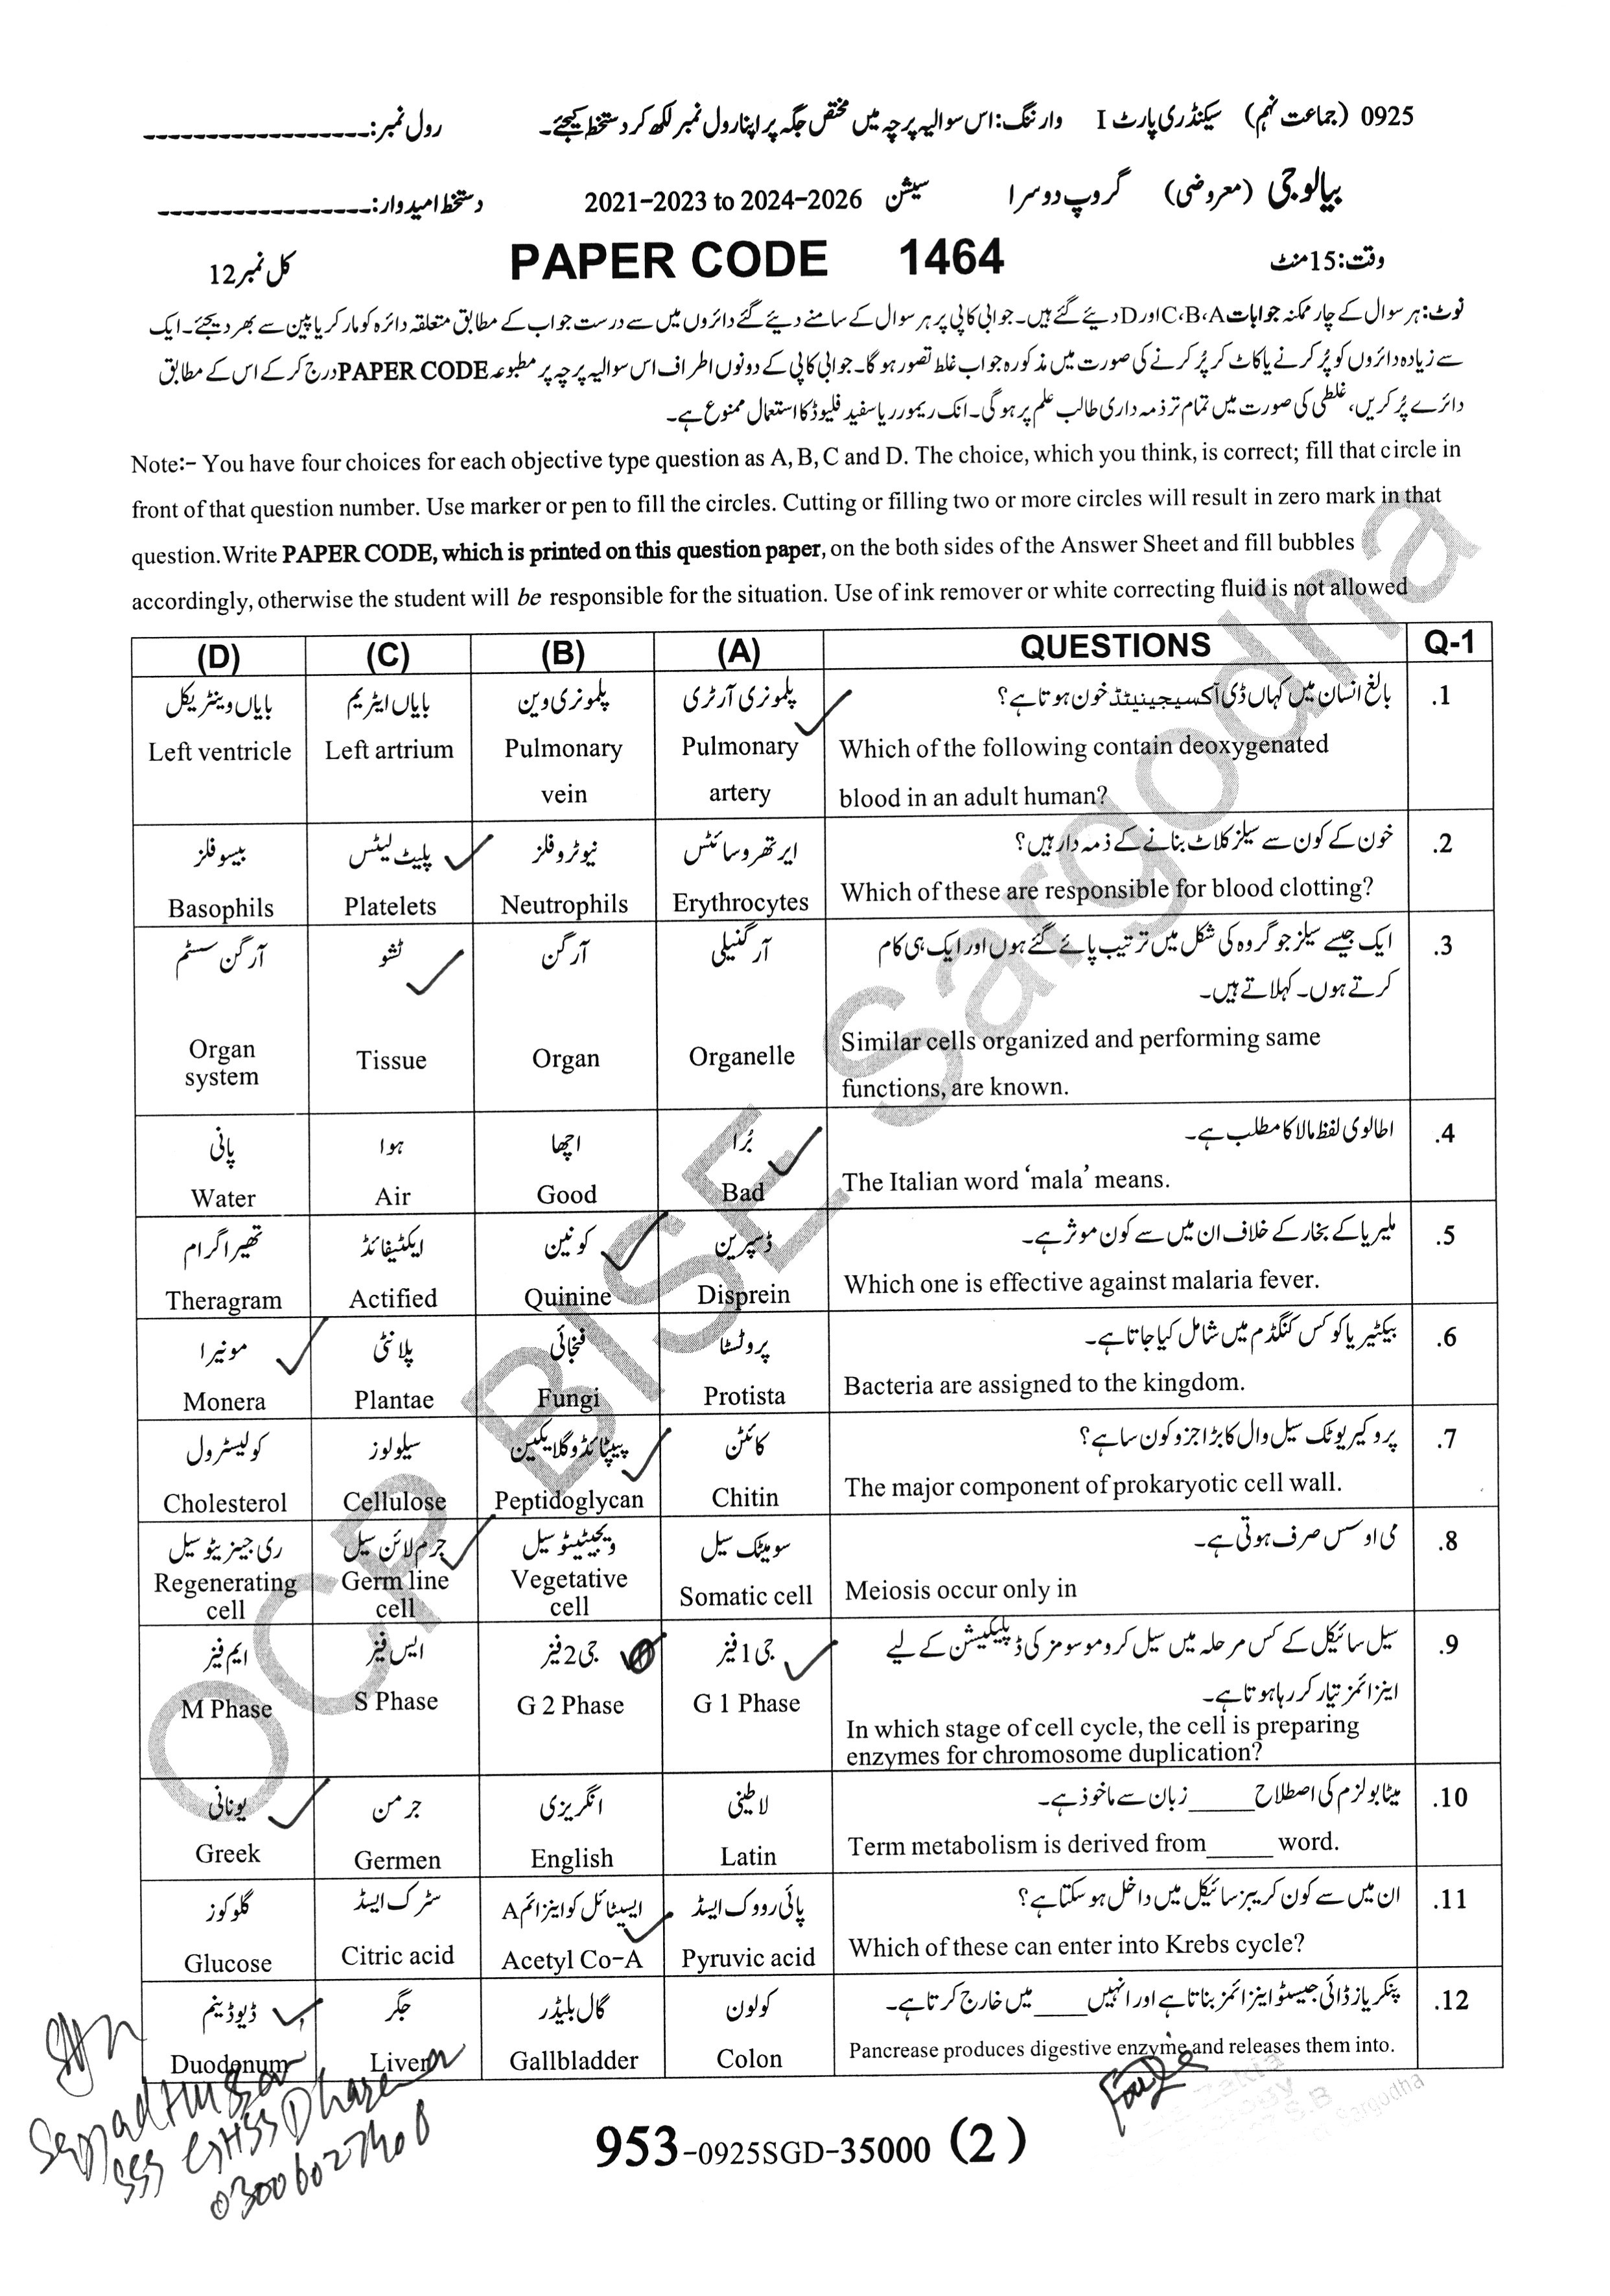 0925 (جماعت نہم) سیکنڈری پارٹ I وارننگ: اس سوالیہ پرچہ میں مختص جگہ پر اپنا رول نمبر لکھ کر دستخط کیجئے۔ رول نمبر:
بیالوجی (معروضی) گروپ دوسرا سیشن 2021-2023 to 2024-2026 دستخط امیدوار:
وقت: 15 منٹ PAPER CODE 1464 کل نمبر 12
نوٹ: ہر سوال کے چار ممکنہ جوابات A،B،C اور D دیئے گئے ہیں۔ جوابی کاپی پر ہر سوال کے سامنے دیئے گئے دائروں میں سے درست جواب کے مطابق متعلقہ دائرہ کو مارکر یا پین سے بھر دیجئے۔ ایک
سے زیادہ دائروں کو پُر کرنے یا کاٹ کر پُر کرنے کی صورت میں مذکورہ جواب غلط تصور ہو گا۔ جوابی کاپی کے دونوں اطراف اس سوالیہ پرچہ پر مطبوعہ PAPER CODE درج کر کے اس کے مطابق
دائرے پُر کریں، غلطی کی صورت میں تمام تر ذمہ داری طالب علم پر ہو گی۔ انک ریمورر یا سفید فلیوڈ کا استعمال ممنوع ہے۔
Note:- You have four choices for each objective type question as A, B, C and D. The choice, which you think, is correct; fill that circle in
front of that question number. Use marker or pen to fill the circles. Cutting or filling two or more circles will result in zero mark in that
question. Write PAPER CODE, which is printed on this question paper, on the both sides of the Answer Sheet and fill bubbles
accordingly, otherwise the student will be responsible for the situation. Use of ink remover or white correcting fluid is not allowed
(D) (C) (B) (A) QUESTIONS Q-1
بالغ انسان میں کہاں ڈی آکسیجینیٹڈ خون ہوتا ہے؟ .1
پلمونری آرٹری پلمونری وین بایاں ایٹریم بایاں وینٹریکل
Left ventricle Left artrium Pulmonary vein Pulmonary artery
Which of the following contain deoxygenated
blood in an adult human?
خون کے کون سے سیلز کلاٹ بنانے کے ذمہ دار ہیں؟ .2
ایرتھروسائٹس نیوٹروفلز پلیٹ لیٹس بیسوفلز
Basophils Platelets Neutrophils Erythrocytes
Which of these are responsible for blood clotting?
ایک جیسے سیلز جو گروہ کی شکل میں ترتیب پائے گئے ہوں اور ایک ہی کام .3
کرتے ہوں۔ کہلاتے ہیں۔
آرگنیلی آرگن ٹشو آرگن سسٹم
Organ system Tissue Organ Organelle
Similar cells organized and performing same
functions, are known.
اطالوی لفظ مالا کا مطلب ہے۔ .4
بُرا اچھا ہوا پانی
Water Air Good Bad
The Italian word ‘mala’ means.
ملیریا کے بخار کے خلاف ان میں سے کون موثر ہے۔ .5
ڈسپرین کونین ایکٹیفائڈ تھیراگرام
Theragram Actified Quinine Disprein
Which one is effective against malaria fever.
بیکٹیریا کو کس کنگڈم میں شامل کیا جاتا ہے۔ .6
پروٹسٹا فنجائی پلانٹی مونیرا
Monera Plantae Fungi Protista
Bacteria are assigned to the kingdom.
پروکیریوٹک سیل وال کا بڑا جزو کون سا ہے؟ .7
کائٹن پیپٹائڈوگلائیکین سیلولوز کولیسٹرول
Cholesterol Cellulose Peptidoglycan Chitin
The major component of prokaryotic cell wall.
می اوسس صرف ہوتی ہے۔ .8
سومیٹک سیل ویجیٹیٹو سیل جرم لائن سیل ری جینریٹو سیل
Regenerating cell Germ line cell Vegetative cell Somatic cell
Meiosis occur only in
سیل سائیکل کے کس مرحلہ میں سیل کروموسومز کی ڈپلیکیشن کے لیے .9
اینزائمز تیار کر رہا ہوتا ہے۔
جی 1 فیز جی 2 فیز ایس فیز ایم فیز
M Phase S Phase G 2 Phase G 1 Phase
In which stage of cell cycle, the cell is preparing
enzymes for chromosome duplication?
میٹابولزم کی اصطلاح _____ زبان سے ماخوذ ہے۔ .10
لاطینی انگریزی جرمن یونانی
Greek Germen English Latin
Term metabolism is derived from_____ word.
ان میں سے کون کریبز سائیکل میں داخل ہو سکتا ہے؟ .11
پائی رووک ایسڈ ایسیٹائل کو اینزائم A سٹرک ایسڈ گلوکوز
Glucose Citric acid Acetyl Co-A Pyruvic acid
Which of these can enter into Krebs cycle?
پنکریاز ڈائی جیسٹو اینزائمز بناتا ہے اور انہیں ____ میں خارج کرتا ہے۔ .12
کولون گال بلیڈر جگر ڈیوڈینم
Duodenum Liver Gallbladder Colon
Pancrease produces digestive enzyme and releases them into.
953-0925SGD-35000 (2)
SSS GHSS
03006027408
OCP BISE Sargodha